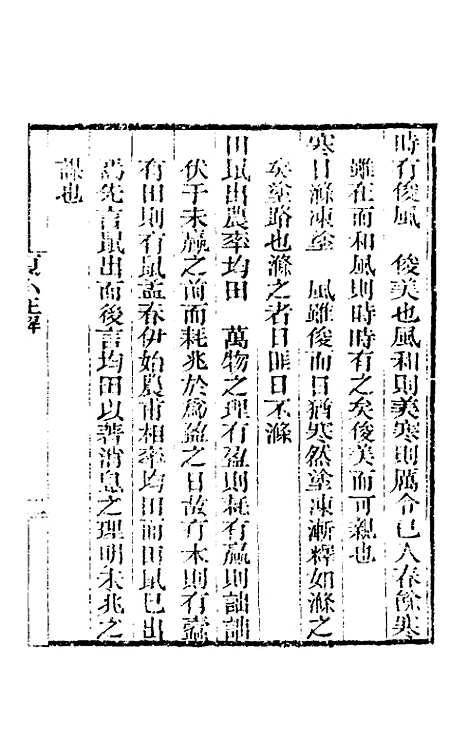 時有俊風　俊美也風和則美寒則厲令已入春餘寒
雖在而和風則時時有之矣俊美而可親也
寒日滌凍塗　風雖俊而日猶寒然塗凍漸釋如滌之
矣塗路也滌之者日匪日不滌
田鼠出農率均田　萬物之理有盈則耗有贏則詘詘
伏于未贏之前而耗兆於為盈之日故有木則有蠹
有田則有鼠蓋春伊始農甫相率均田而田鼠已出
焉先言鼠出而後言均田以著消息之理明未兆之
謀也
夏小正解